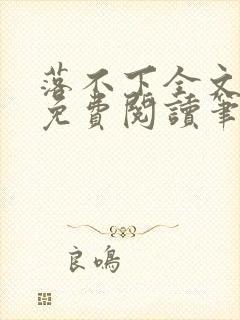 落不下全文
免費閱讀筆
良鳴